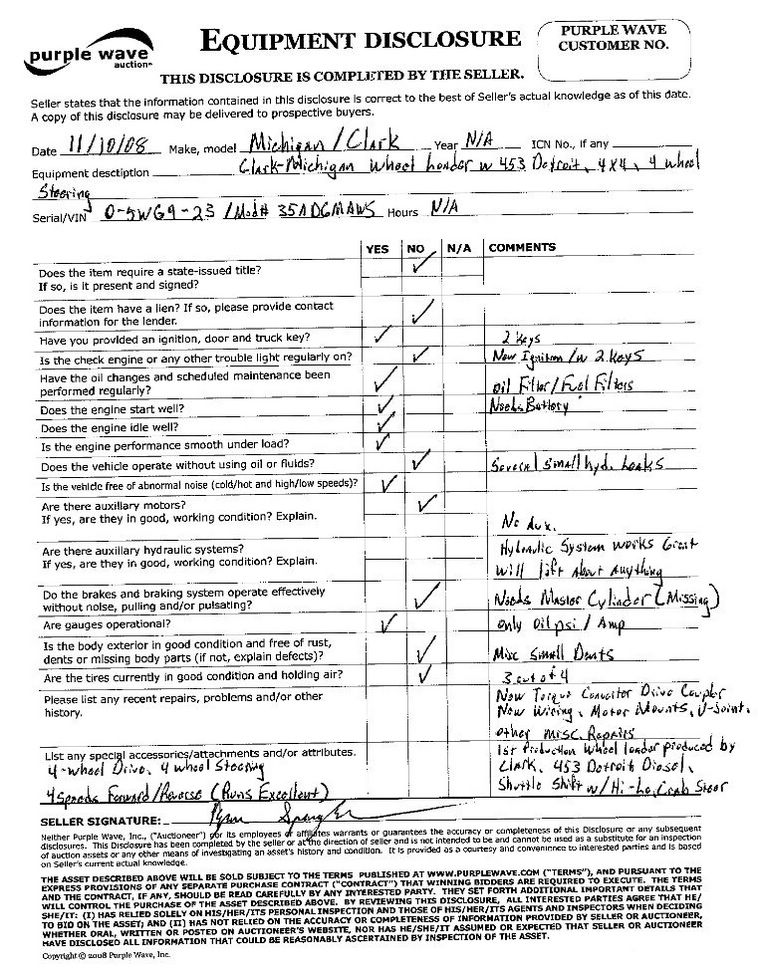 purple wave
auction
EQUIPMENT DISCLOSURE
PURPLE WAVE
CUSTOMER NO.
THIS DISCLOSURE IS COMPLETED BY THE SELLER.
Seller states that the information contained in this disclosure is correct to the best of Seller's actual knowledge as of this date.
A copy of this disclosure may be delivered to prospective buyers.
Date 11/10/08 Make, model Michigan/Clark Year N/A ICN No., if any
Equipment desctiption Clark-Michigan Wheel Loader w 453 Detroit, 4x4, 4 wheel
Steering
Serial/VIN 0-5WG9-23 /Mod# 35ADGMAWS Hours N/A
YES NO N/A COMMENTS
Does the item require a state-issued title?
If so, is it present and signed?
Does the item have a lien? If so, please provide contact
information for the lender.
Have you provided an ignition, door and truck key? 2 Keys
Is the check engine or any other trouble light regularly on? New Ignition/w 2 keys
Have the oil changes and scheduled maintenance been
performed regularly? Oil Filter/Fuel Filters
Does the engine start well? Needs Battery
Does the engine idle well?
Is the engine performance smooth under load?
Does the vehicle operate without using oil or fluids? Several small hyd. Leaks
Is the vehicle free of abnormal noise (cold/hot and high/low speeds)?
Are there auxillary motors?
If yes, are they in good, working condition? Explain. No Aux.
Are there auxillary hydraulic systems? Hydraulic System works Great
If yes, are they in good, working condition? Explain. Will lift About Anything
Do the brakes and braking system operate effectively
without noise, pulling and/or pulsating? Needs Master Cylinder (Missing)
Are gauges operational? Only Oil psi / Amp
Is the body exterior in good condition and free of rust,
dents or missing body parts (if not, explain defects)? Misc Small Dents
Are the tires currently in good condition and holding air? 3 out of 4
Please list any recent repairs, problems and/or other New Torque Convertor Drive Coupler
history. New Wiring, Motor Mounts, U-Joint,
other misc. Repairs
List any special accessories/attachments and/or attributes. 1st Production Wheel loader produced by
4-wheel Drive, 4 wheel Steering Clark, 453 Detroit Diesel,
4 Speeds Forward/Reverse (Runs Excellent) Shuttle Shift w/ Hi-Lo, Crab Steer
SELLER SIGNATURE:
Neither Purple Wave, Inc., ("Auctioneer") nor its employees or affiliates warrants or guarantees the accuracy or completeness of this Disclosure or any subsequent
disclosures. This Disclosure has been completed by the seller or at the direction of seller and is not intended to be and cannot be used as a substitute for an inspection
of auction assets or any other means of investigating an asset's history and condition. It is provided as a courtesy and convenience to interested parties and is based
on Seller's current actual knowledge.
THE ASSET DESCRIBED ABOVE WILL BE SOLD SUBJECT TO THE TERMS PUBLISHED AT WWW.PURPLEWAVE.COM ("TERMS"), AND PURSUANT TO THE
EXPRESS PROVISIONS OF ANY SEPARATE PURCHASE CONTRACT ("CONTRACT") THAT WINNING BIDDERS ARE REQUIRED TO EXECUTE. THE TERMS
AND THE CONTRACT, IF ANY, SHOULD BE READ CAREFULLY BY ANY INTERESTED PARTY. THEY SET FORTH ADDITIONAL IMPORTANT DETAILS THAT
WILL CONTROL THE PURCHASE OF THE ASSET DESCRIBED ABOVE. BY REVIEWING THIS DISCLOSURE, ALL INTERESTED PARTIES AGREE THAT HE/
SHE/IT: (I) HAS RELIED SOLELY ON HIS/HER/ITS PERSONAL INSPECTION AND THOSE OF HIS/HER/ITS AGENTS AND INSPECTORS WHEN DECIDING
TO BID ON THE ASSET; AND (II) HAS NOT RELIED ON THE ACCURACY OR COMPLETENESS OF INFORMATION PROVIDED BY SELLER OR AUCTIONEER,
WHETHER ORAL, WRITTEN OR POSTED ON AUCTIONEER'S WEBSITE, NOR HAS HE/SHE/IT ASSUMED OR EXPECTED THAT SELLER OR AUCTIONEER
HAVE DISCLOSED ALL INFORMATION THAT COULD BE REASONABLY ASCERTAINED BY INSPECTION OF THE ASSET.
Copyright © 2008 Purple Wave, Inc.